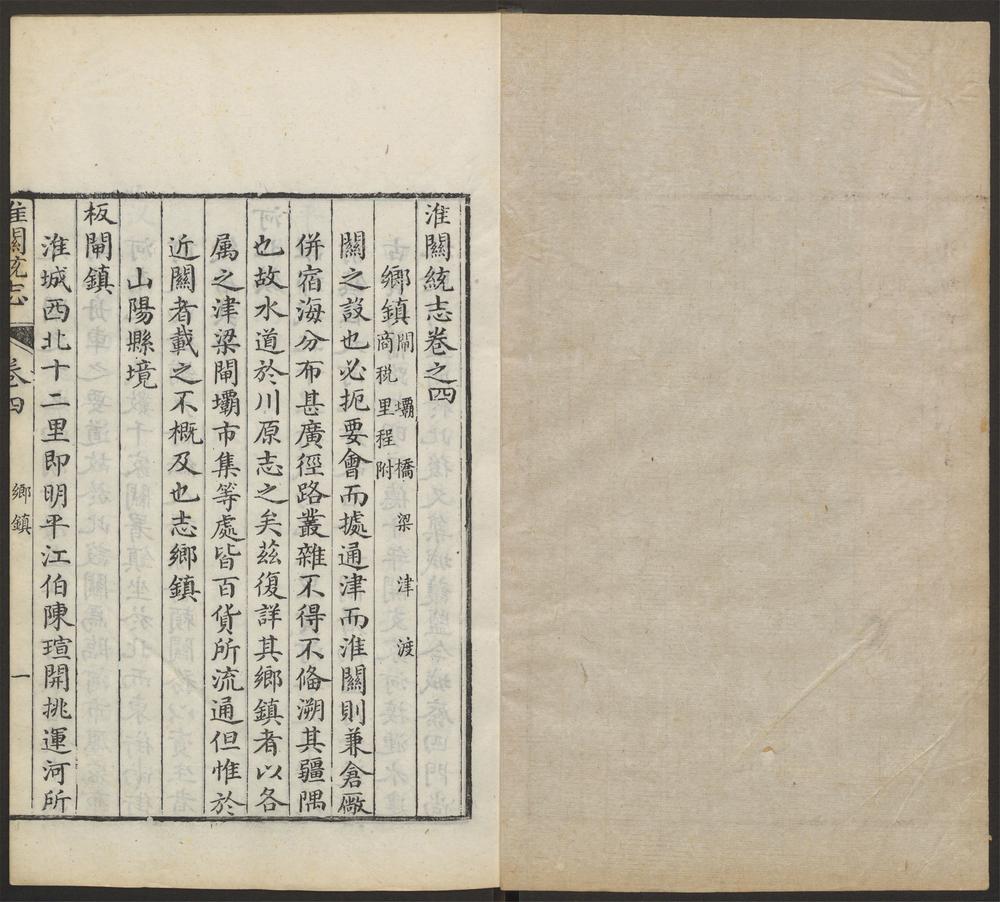 淮關統志卷之四
鄉鎮閘壩橋梁津渡
商稅里程附
關之設也必扼要會而據通津而淮關則兼倉廠
併宿海分布甚廣徑路叢雜不得不偹溯其疆隅
也故水道於川原志之矣茲復詳其鄉鎮者以各
属之津梁閘壩市集等處皆百貨所流通但惟於
近關者載之不概及也志鄉鎮
山陽縣境
板閘鎮
淮城西北十二里即明平江伯陳瑄開挑運河所
淮關統志
卷四
鄉鎮
一